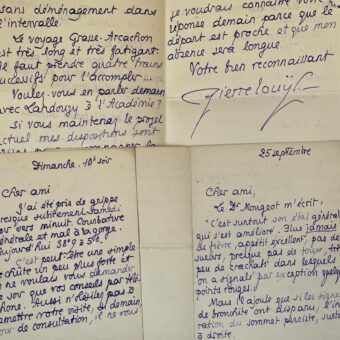 sans déménagement dans
l'intervalle.
Le voyage Grasse-Arcachon
est très long et très fatigant.
Il faut prendre quatre trains
successifs pour l'accomplir...
Voulez-vous en parler demain
avec Landouzy à l'Académie?
Si vous maintenez le projet
actuel mes dispositions sont
je voudrais connaître votre
réponse demain parce que le
départ est proche et que mon
absence sera longue.
Votre bien reconnaissant
Pierre Louÿs
Dimanche. 10h soir
Cher ami
J'ai été pris de grippe
presque subitement samedi
soir vers minuit. Courbature
générale et mal à la gorge.
Aujourd'hui 38°9 à 5h.
C'est peut-être une simple
rechute un peu plus forte et
je ne voulais vous demander
ce soir que vos conseils par télé-
phone. Aussi n'hésitez pas à
remettre votre visite, si demain,
jour de consultation, il ne vous
25 septembre
Cher ami,
Le Dr Nougeot m'écrit:
"C'est surtout son état général
qui s'est amélioré. Plus jamais
de fièvre, appétit excellent, pas de
sueurs, presque pas de toux, très
peu de crachats dans lesquels
on a signalé par exception quelques
points rouges.
Mais j'ajoute que si les signes
de bronchite ont disparu, l'indu-
ration du sommet persiste, surtout
à droite.